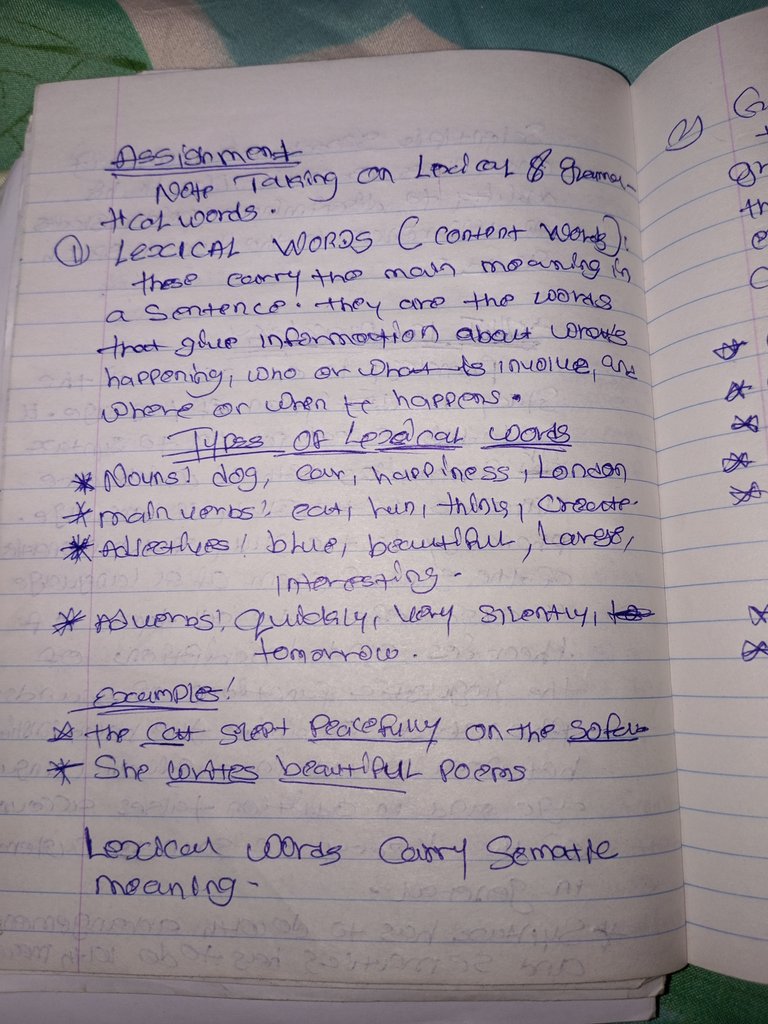 Assignment
Note Taking on Lexical & gramma-
tical words.
① LEXICAL WORDS (content words):
these carry the main meaning in
a sentence. they are the words
that give information about what's
happening, who or what is involve, and
where or when it happens.
Types of Lexical words
* Nouns: dog, car, happiness, London
* main verbs: eat, run, think, create.
* Adjectives: blue, beautiful, Large,
interesting.
* Adverbs: quickly, very silently,
tomorrow.
Examples:
* the cat slept peacefully on the sofa
* She writes beautiful poems
Lexical words carry Sematic
meaning.
2)